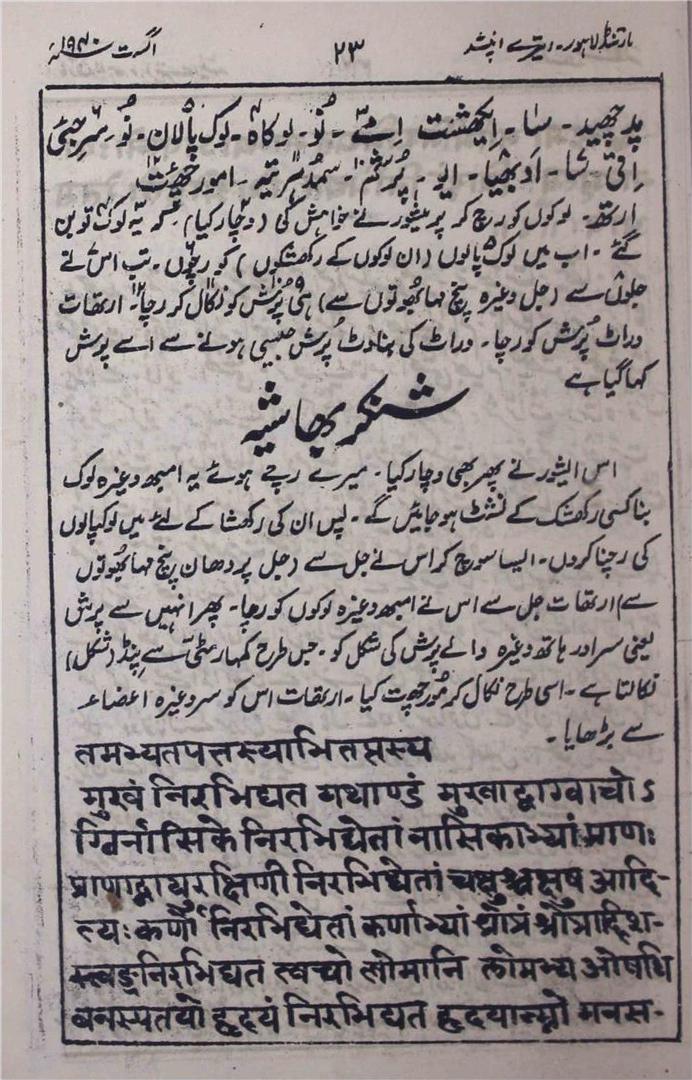 مارتنڈ لاہور۔ ایترے اپنشد ۲۳ اگست ۱۹۴۰ء
پدچھید۔ سا۔ ایکھشت اِمے۔ نُو۔ لوکاہ۔ لوک پالان۔ نُو۔ سرجئی
اِتی۔ سا۔ ادبھیا۔ ایو۔ پُرشم۔ سمدسرتیہ۔ امورچھیت
ارتھ۔ لوکوں کو رچ کر پرمیشور نے خواہش کی (وچار کیا) کہ یہ لوک تو بن
گئے۔ اب میں لوک پالوں (ان لوکوں کے رکھشکوں) کو رچوں۔ تب اس نے
جلوں سے (جل وغیرہ پنچ مہابھوتوں سے) ہی پُرش کو نکال کر رچا۔ ارتھات
وراٹ پُرش کو رچا۔ وراٹ کی بناوٹ پُرش جیسی ہونے سے اسے پرش
کہا گیا ہے
شنکر بھاشیہ
اس ایشور نے پھر بھی وچار کیا۔ میرے رچے ہوئے یہ امبھ وغیرہ لوک
بنا کسی رکھشک کے نشٹ ہو جائیں گے۔ پس ان کی رکھشا کے لئے میں لوکپالوں
کی رچنا کروں۔ ایسا سوچ کر اس نے جل سے (جل پردھان پنچ مہابھوتوں
سے) ارتھات جل سے اس نے امبھ وغیرہ لوکوں کو رچا۔ پھر انہیں سے پرش
یعنی سر اور ہاتھ وغیرہ والے پرش کی شکل کو۔ جس طرح کمہار مٹی سے پنڈ (شکل)
نکالتا ہے۔ اسی طرح نکال کر مُورچھت کیا۔ ارتھات اس کو سر وغیرہ اعضاء
سے بڑھایا۔
तमभ्यतपत्तस्याभितप्तस्य
मुखं निरभिद्यत यथाण्डं मुखाद्वाग्वाचोऽ
ग्निर्नासिके निरभिद्येतां नासिकाभ्यां प्राणः
प्राणाद्वायुरक्षिणी निरभिद्येतां चक्षुश्चक्षुष आदि-
त्यः कर्णौ निरभिद्येतां कर्णाभ्यां श्रोत्रं श्रोत्राद्दिश-
स्त्वङ्निरभिद्यत त्वचो लोमानि लोमभ्य ओषधि
वनस्पतयो हृदयं निरभिद्यत हृदयान्मनो मनस-